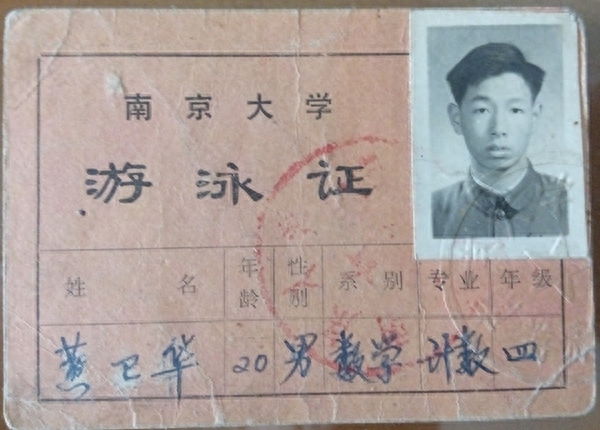 南京大学
游泳证
姓名 年龄 性别 系别 专业 年级
燕卫华 20 男 数学 计数 四